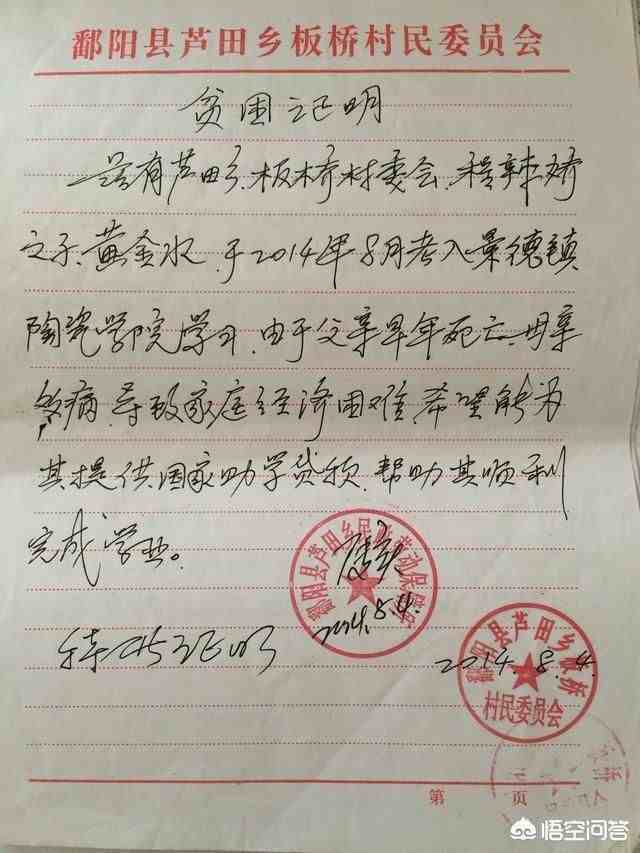 鄱阳县芦田乡板桥村民委员会
贫困证明
兹有芦田乡板桥村委会,程辣娇
之子黄金水,于2014年8月考入景德镇
陶瓷学院学习,由于父亲早年死亡,母亲
多病,导致家庭经济困难,希望能为
其提供国家助学贷款,帮助其顺利
完成学业。
属实
2014.8.4.
特此证明
2014.8.4.
鄱阳县芦田乡民政劳动保障所
鄱阳县芦田乡板桥
村民委员会
第 页
悟空问答